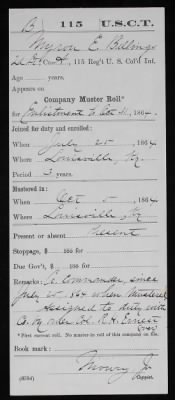 B | 115 | U.S.C.T.
Myron E. Billings
2d Lt., Co. , 115 Reg't U. S. Col'd Inf.
Age years.
Appears on
Company Muster Roll*
for Enlistment to Oct 31, 1864.
Joined for duty and enrolled:
When July 25, 1864
Where Louisville, Ky
Period 3 years.
Mustered in:
When Oct , 1864
Where Louisville, Ky
Present or absent Present
Stoppage, $ 100 for
Due Gov't, $ 100 for
Remarks: Co Commander since
July 25, 864 when Mustered
assigned to duty with
Co. by order Col. R. H. Earnest
*First current roll. No muster-in roll of this company on file.
Book mark:
Mowry Jr
(858d) Copyist.